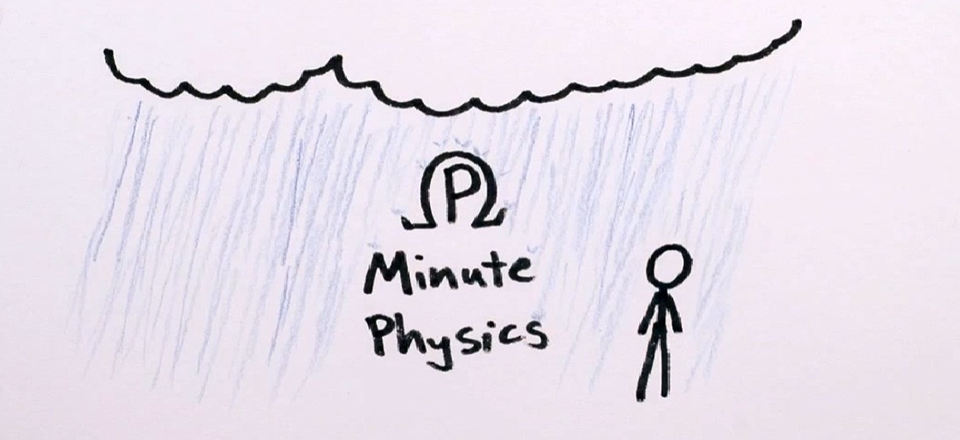 ΩP
Minute
Physics